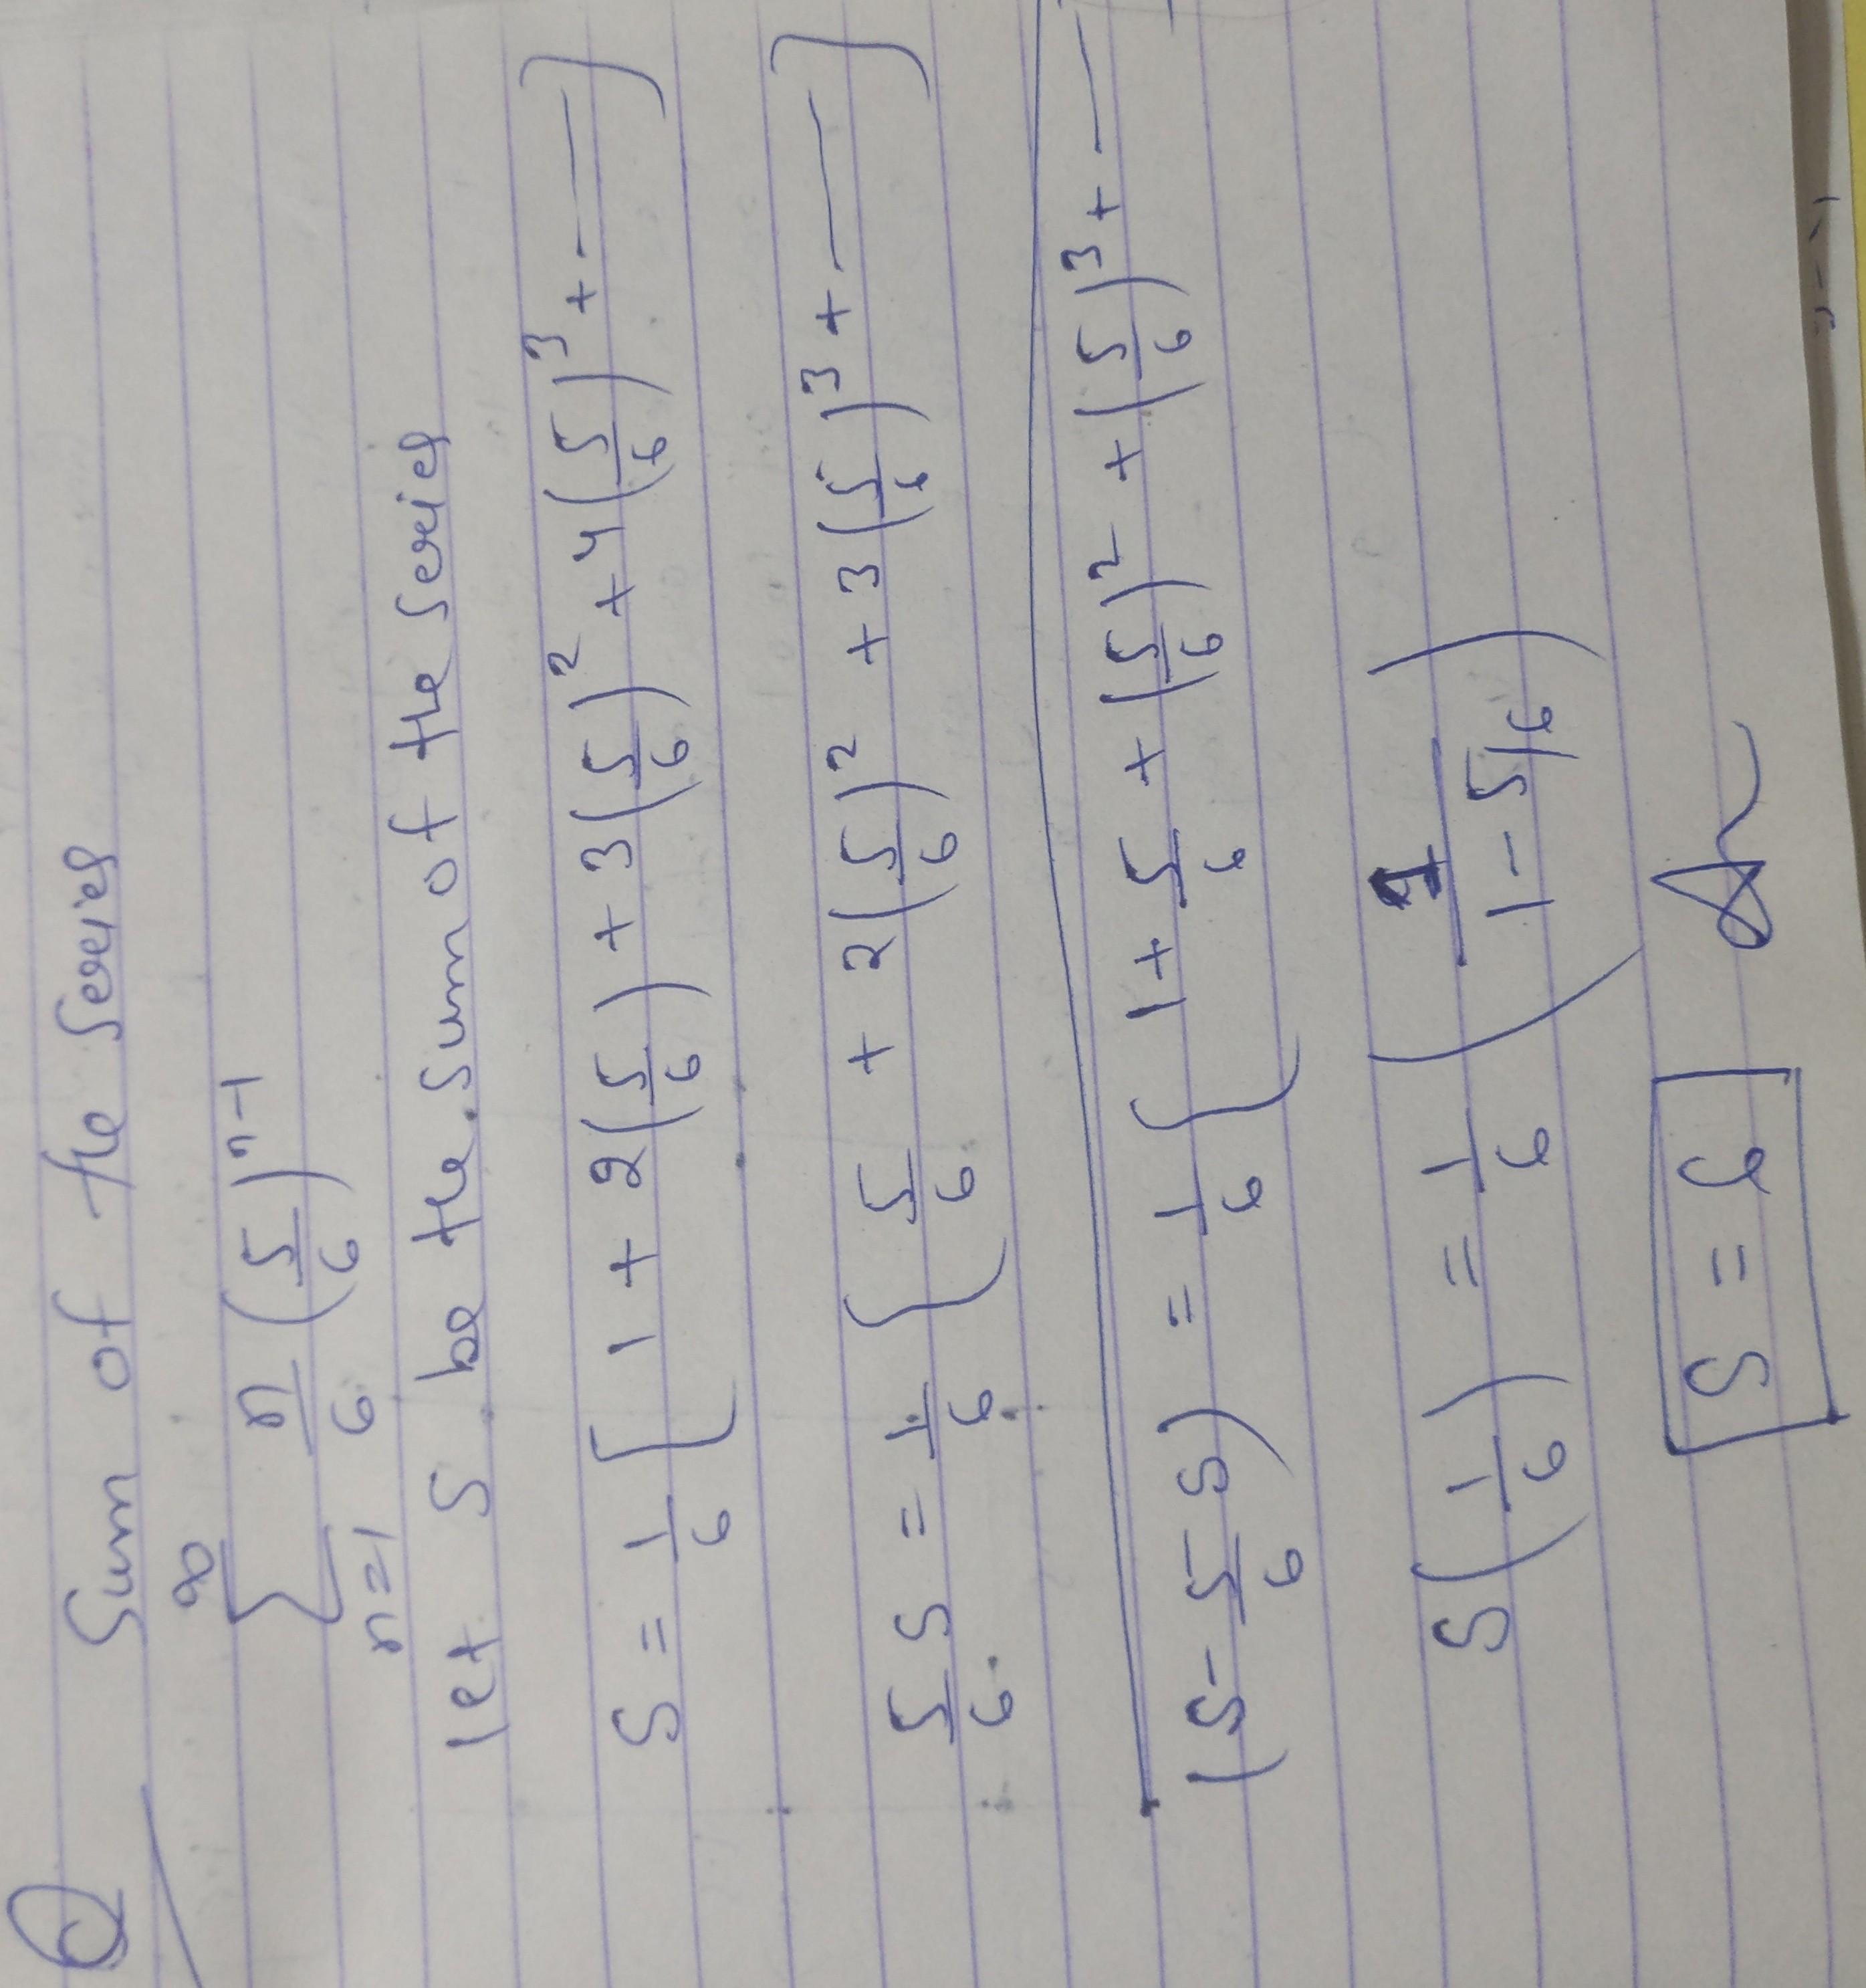 Q Sum of the Series
∞ ∑ n=1 n/6 (5/6)^n-1
let S be the Sum of the Series
S = 1/6 [ 1 + 2(5/6) + 3(5/6)^2 + 4(5/6)^3 + — ]
5/6 S = 1/6 { 5/6 + 2(5/6)^2 + 3(5/6)^3 + — ]
(S - 5/6 S) = 1/6 { 1 + 5/6 + (5/6)^2 + (5/6)^3 + —
S(1/6) = 1/6 ( 1 / 1 - 5/6 )
S = 6